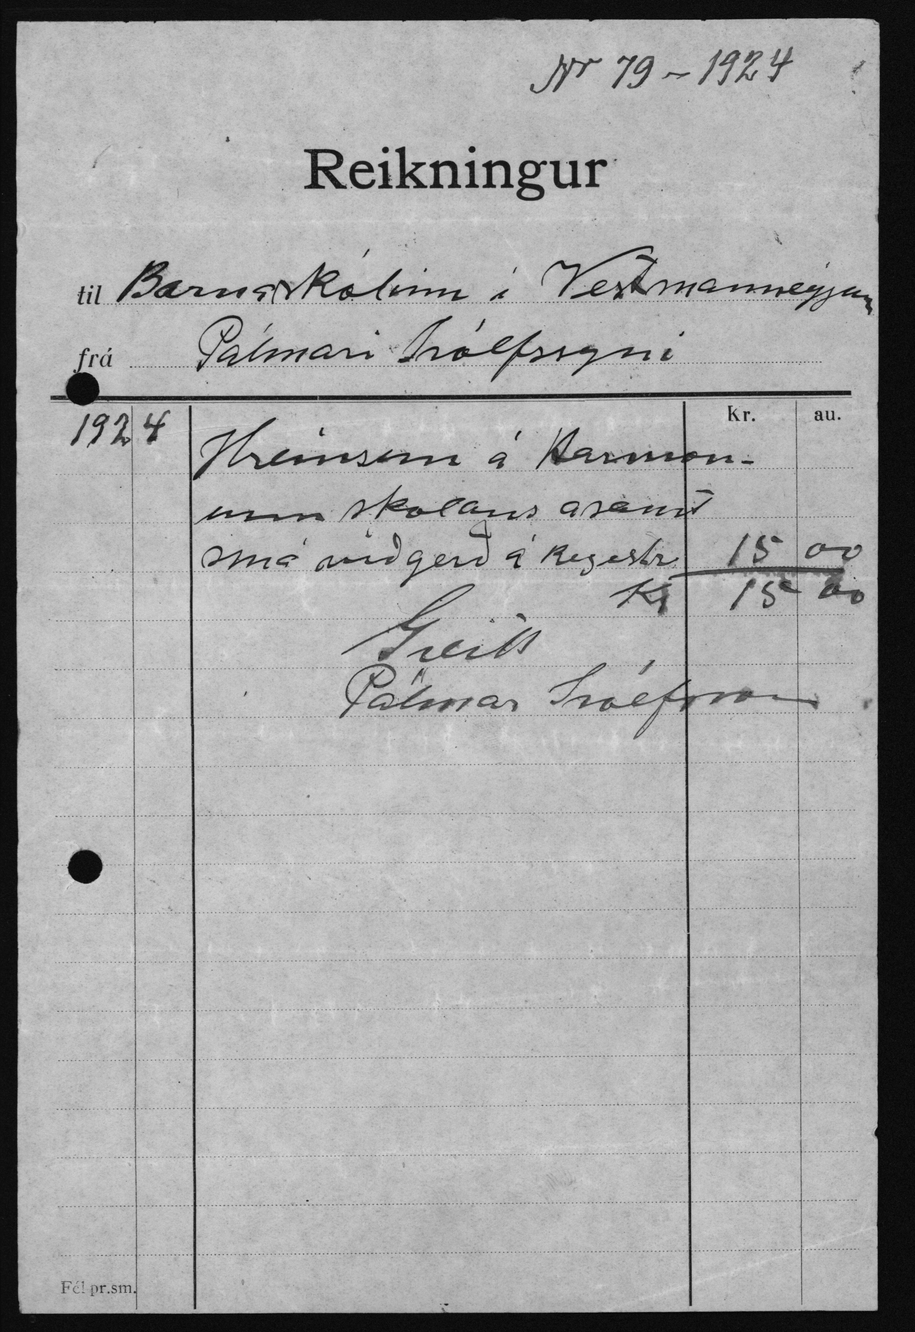 Nr 79 - 1924
Reikningur
til Barnaskólinn í Vestmanneyjum
frá Pálmari Ísólfssyni
Kr. au.
1924 Hreinsun á Harmon-
ium skolans ásamt
smá viðgerð á Regestr 15 00
Kr 15 00
Greitt
Pálmar Ísólfsson
Fél.pr.sm.